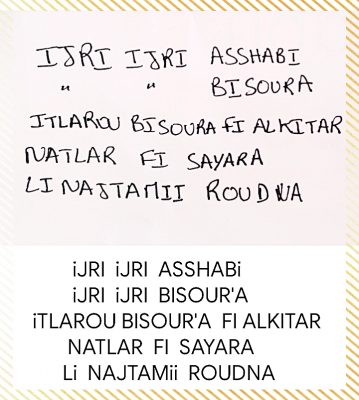 IJRI IJRI ASSHABI
" " BISOURA
ITLAROU BISOURA FI ALKITAR
NATLAR FI SAYARA
LI NAJTAMII ROUDNA
iJRI iJRI ASSHABi
iJRI iJRI BISOUR'A
iTLAROU BISOUR'A FI ALKITAR
NATLAR FI SAYARA
Li NAJTAMii ROUDNA